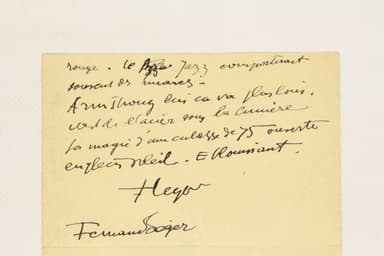 rouge. Le Jazz comportait
souvent des nuances -
Armstrong lui ça va plus loin.
c'est de l'acier sous la lumière
La magie d'une culasse de 75 ouverte
en plein soleil. Eblouissant.
FLeger
Fernand Léger